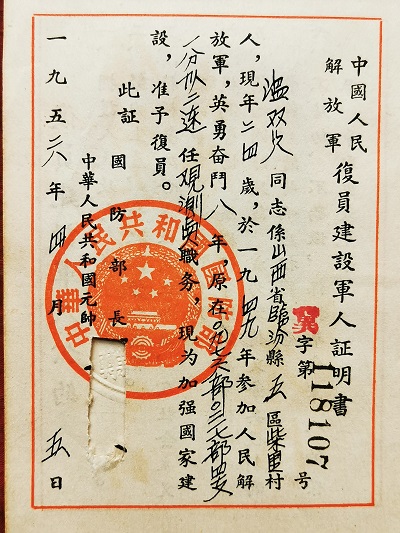 中國人民
解放軍
復員建設軍人証明書
冀字第118107号
温双火同志係山西省臨汾縣五區柴里村
人,現年二四歲,於一九四九年参加人民解
放軍,英勇奋鬥八年,原在〇九七六部〇二七部
一分队二連任观測員職务,現为加强國家建
設,准予復員。
此証
國防部長
中華人民共和國元帥
一九五六年四月五日
中華人民共和國國防部